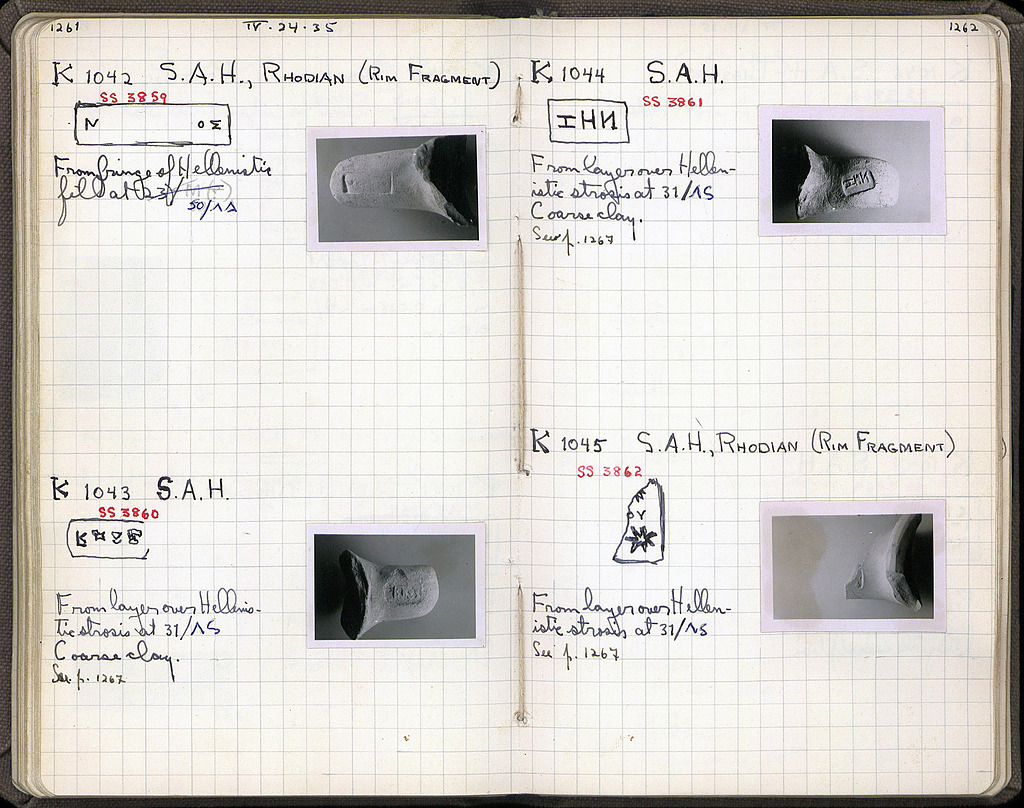 1261
IV·24·35
K 1042 S.A.H., RHODIAN (RIM FRAGMENT)
SS 3859
N ΟΣ
From fringe of Hellenistic
fill at
50/ΛΔ
K 1043 S.A.H.
SS 3860
From layer over Hellenis-
tic strosis at 31/ΛS
Coarse clay.
See p. 1267
1262
K 1044 S.A.H.
SS 3861
ΙΗИ
From layer over Hellen-
istic strosis at 31/ΛS
Coarse clay.
See p. 1267
K 1045 S.A.H., RHODIAN (RIM FRAGMENT)
SS 3862
ΟΥ
From layer over Hellen-
istic strosis at 31/ΛS
See p. 1267